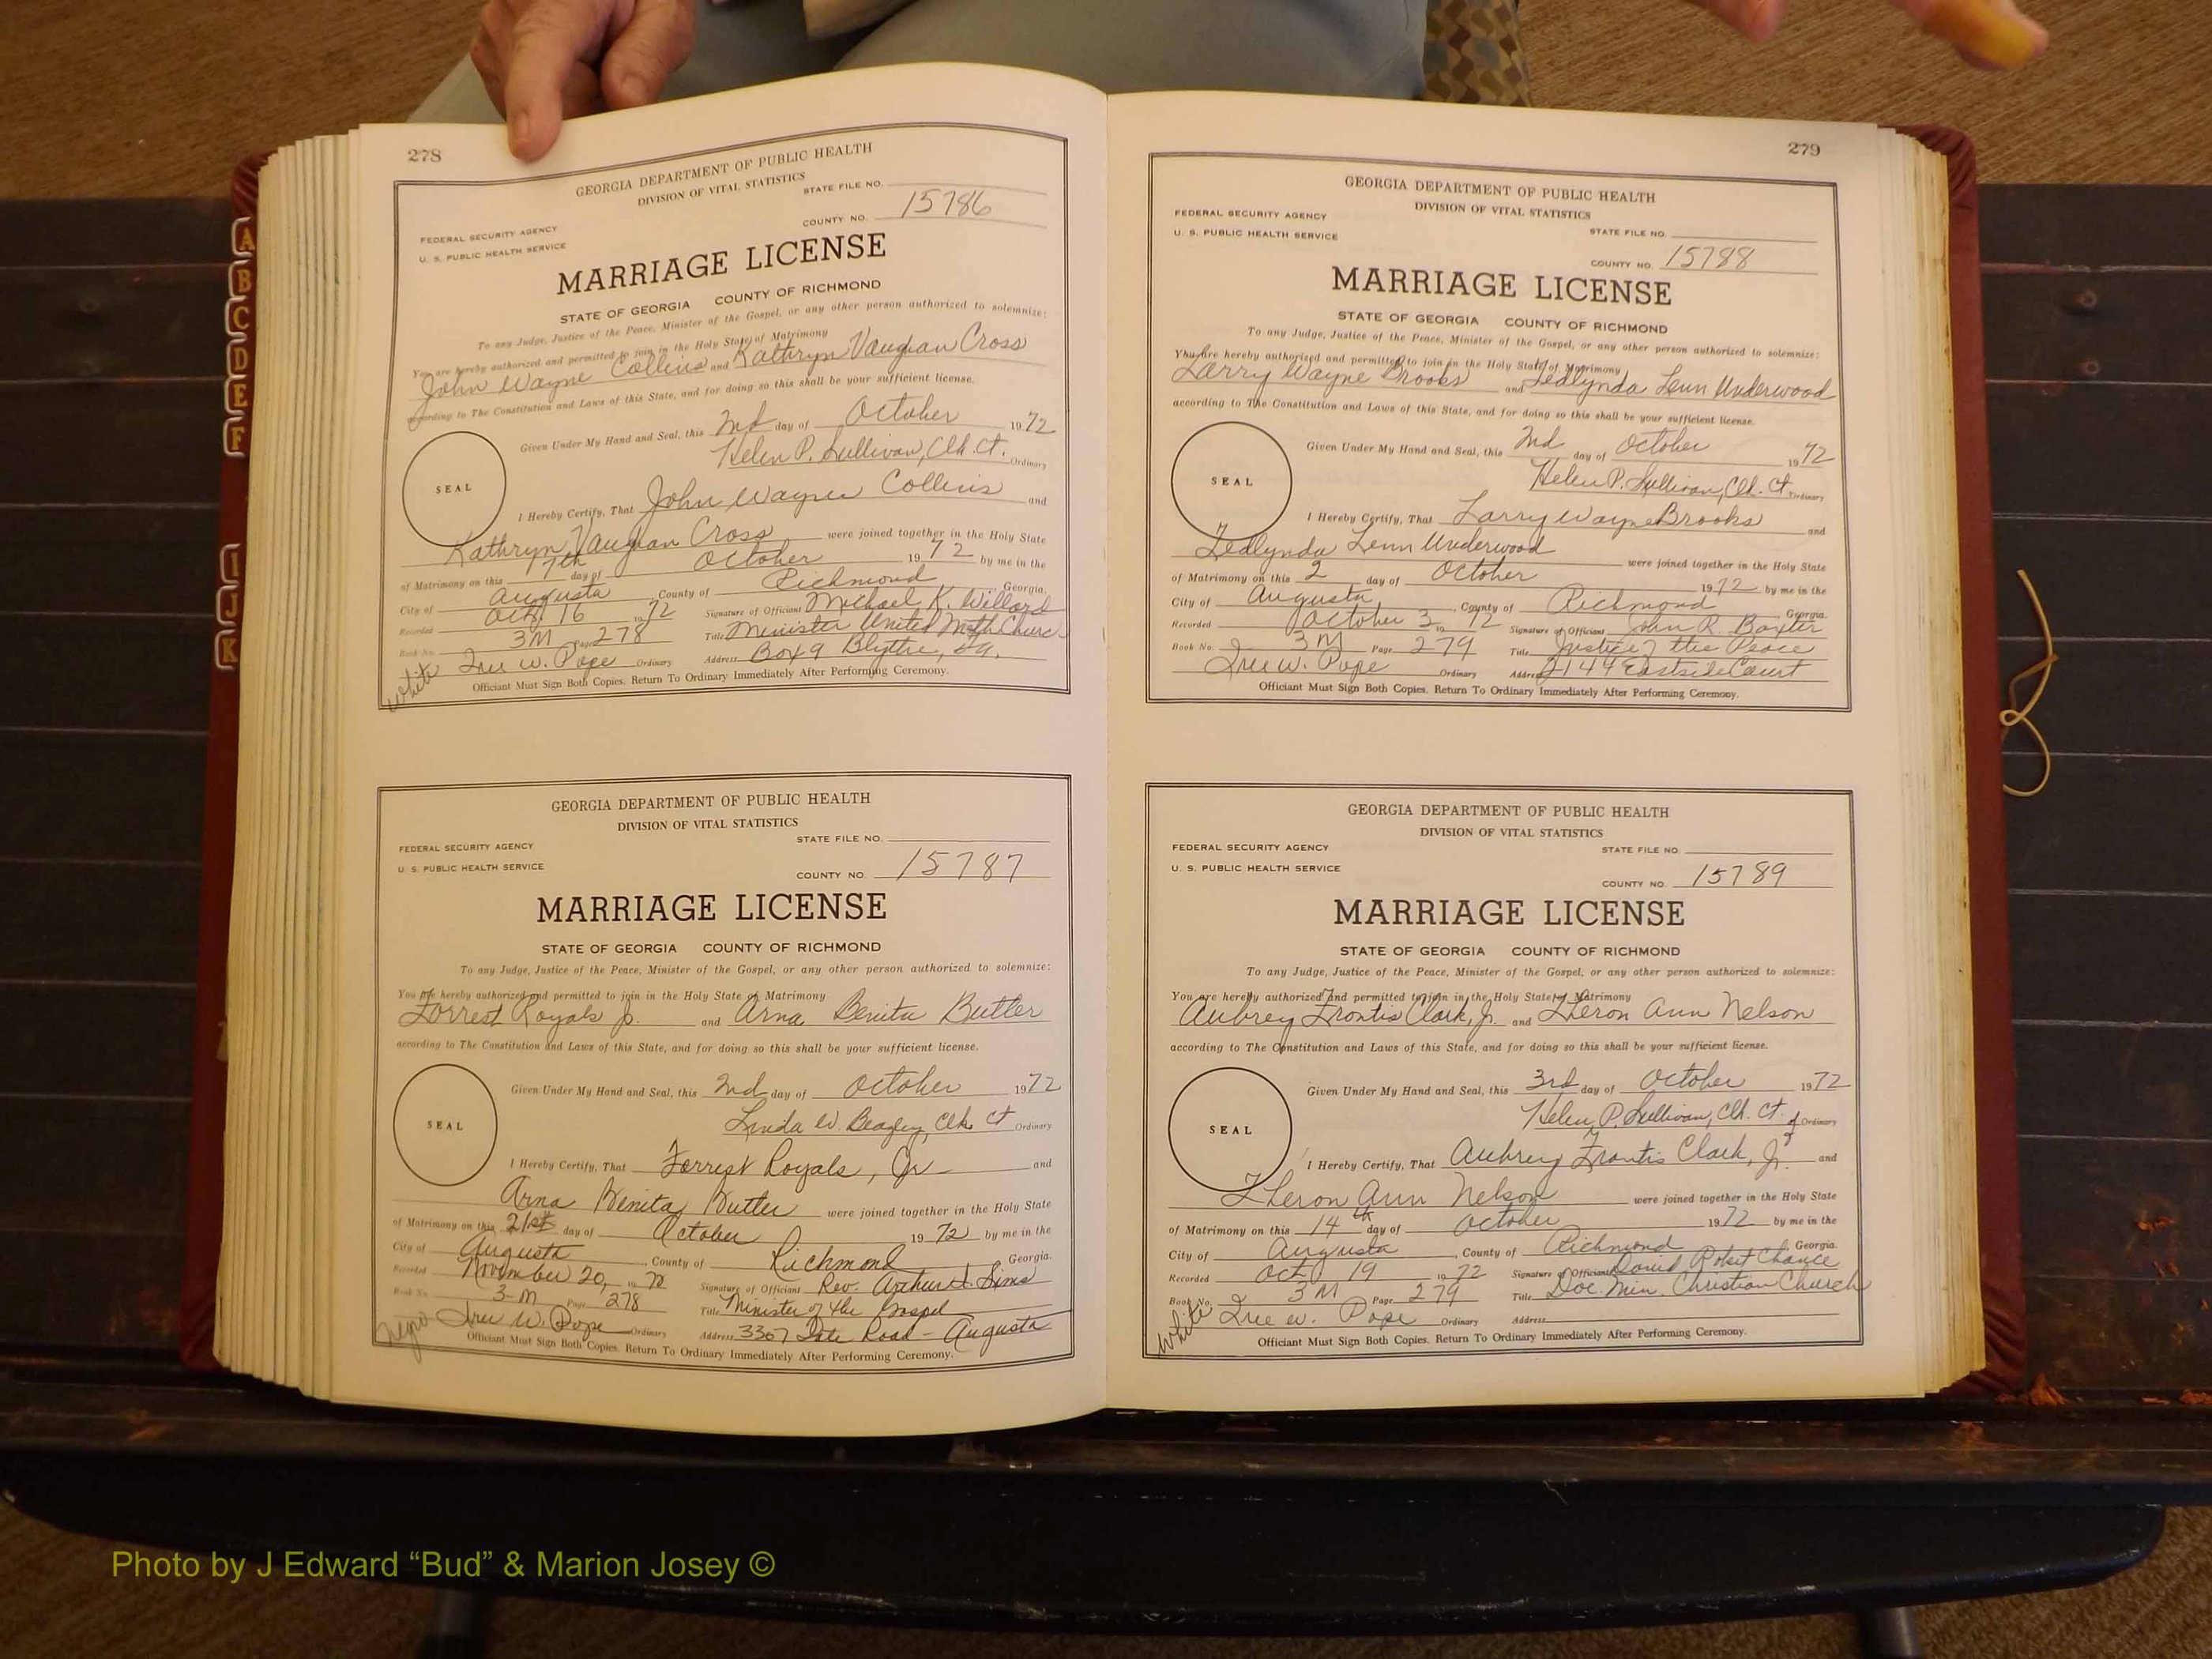 278
GEORGIA DEPARTMENT OF PUBLIC HEALTH
DIVISION OF VITAL STATISTICS
STATE FILE NO.
COUNTY NO. 15786
FEDERAL SECURITY AGENCY
U. S. PUBLIC HEALTH SERVICE
MARRIAGE LICENSE
STATE OF GEORGIA COUNTY OF RICHMOND
To any Judge, Justice of the Peace, Minister of the Gospel, or any other person authorized to solemnize:
You are hereby authorized and permitted to join in the Holy State of Matrimony
John Wayne Collins and Kathryn Vaughan Cross
according to The Constitution and Laws of this State, and for doing so this shall be your sufficient license.
Given Under My Hand and Seal, this 2nd day of October 1972
Helen P. Sullivan, Clk. Ct. Ordinary
SEAL
I Hereby Certify, That John Wayne Collins and
Kathryn Vaughan Cross were joined together in the Holy State
of Matrimony on this 7th day of October 1972 by me in the
City of Augusta, County of Richmond Georgia.
Recorded Oct. 16 1972 Signature of Officiant Michael K. Willard
Book No. 3M Page 278 Title Minister United Meth Churc
Ordinary Address Box 9 Blythe, Ga.
white
Officiant Must Sign Both Copies. Return To Ordinary Immediately After Performing Ceremony.
GEORGIA DEPARTMENT OF PUBLIC HEALTH
DIVISION OF VITAL STATISTICS
STATE FILE NO.
FEDERAL SECURITY AGENCY
U. S. PUBLIC HEALTH SERVICE
COUNTY NO. 15787
MARRIAGE LICENSE
STATE OF GEORGIA COUNTY OF RICHMOND
To any Judge, Justice of the Peace, Minister of the Gospel, or any other person authorized to solemnize:
You are hereby authorized and permitted to join in the Holy State of Matrimony
Forrest Royals Jr. and Arna Benita Butler
according to The Constitution and Laws of this State, and for doing so this shall be your sufficient license.
Given Under My Hand and Seal, this 2nd day of October 1972
Linda W. Beazley, Clk Ct Ordinary
SEAL
I Hereby Certify, That Forrest Royals, Jr and
Arna Benita Butler were joined together in the Holy State
of Matrimony on this 21st day of October 1972 by me in the
City of Augusta, County of Richmond Georgia.
Recorded November 20, 1972 Signature of Officiant Rev. Arthur Sims
Book No. 3-M Page 278 Title Minister of the Gospel
W. Pope Ordinary Address 3367 Road - Augusta
negro
Officiant Must Sign Both Copies. Return To Ordinary Immediately After Performing Ceremony.
279
GEORGIA DEPARTMENT OF PUBLIC HEALTH
DIVISION OF VITAL STATISTICS
FEDERAL SECURITY AGENCY
U. S. PUBLIC HEALTH SERVICE
STATE FILE NO.
COUNTY NO. 15788
MARRIAGE LICENSE
STATE OF GEORGIA COUNTY OF RICHMOND
To any Judge, Justice of the Peace, Minister of the Gospel, or any other person authorized to solemnize:
You are hereby authorized and permitted to join in the Holy State of Matrimony
Larry Wayne Brooks and Tedlynda Lenn Underwood
according to The Constitution and Laws of this State, and for doing so this shall be your sufficient license.
Given Under My Hand and Seal, this 2nd day of October 1972
Helen P. Sullivan, Clk. Ct. Ordinary
SEAL
I Hereby Certify, That Larry Wayne Brooks and
Tedlynda Lenn Underwood were joined together in the Holy State
of Matrimony on this 2 day of October 1972 by me in the
City of Augusta, County of Richmond Georgia.
Recorded October 3 1972 Signature of Officiant John R. Baxter
Book No. 3M Page 279 Title Justice of the Peace
W. Pope Ordinary Address 2144 Eastside Court
Officiant Must Sign Both Copies. Return To Ordinary Immediately After Performing Ceremony.
GEORGIA DEPARTMENT OF PUBLIC HEALTH
DIVISION OF VITAL STATISTICS
FEDERAL SECURITY AGENCY
U. S. PUBLIC HEALTH SERVICE
STATE FILE NO.
COUNTY NO. 15789
MARRIAGE LICENSE
STATE OF GEORGIA COUNTY OF RICHMOND
To any Judge, Justice of the Peace, Minister of the Gospel, or any other person authorized to solemnize:
You are hereby authorized and permitted to join in the Holy State of Matrimony
Aubrey Frontis Clark, Jr. and Theron Ann Nelson
according to The Constitution and Laws of this State, and for doing so this shall be your sufficient license.
Given Under My Hand and Seal, this 3rd day of October 1972
Helen P. Sullivan, Clk. Ct. Ordinary
SEAL
I Hereby Certify, That Aubrey Frontis Clark, Jr. and
Theron Ann Nelson were joined together in the Holy State
of Matrimony on this 14th day of October 1972 by me in the
City of Augusta, County of Richmond Georgia.
Recorded Oct 19 1972 Signature of Officiant David Robert Chance
Book No. 3M Page 279 Title Doc. Min. Christian Church
W. Pope Ordinary Address
White
Officiant Must Sign Both Copies. Return To Ordinary Immediately After Performing Ceremony.
A
B
C
D
E
F
I
J
K
Photo by J Edward “Bud” & Marion Josey ©